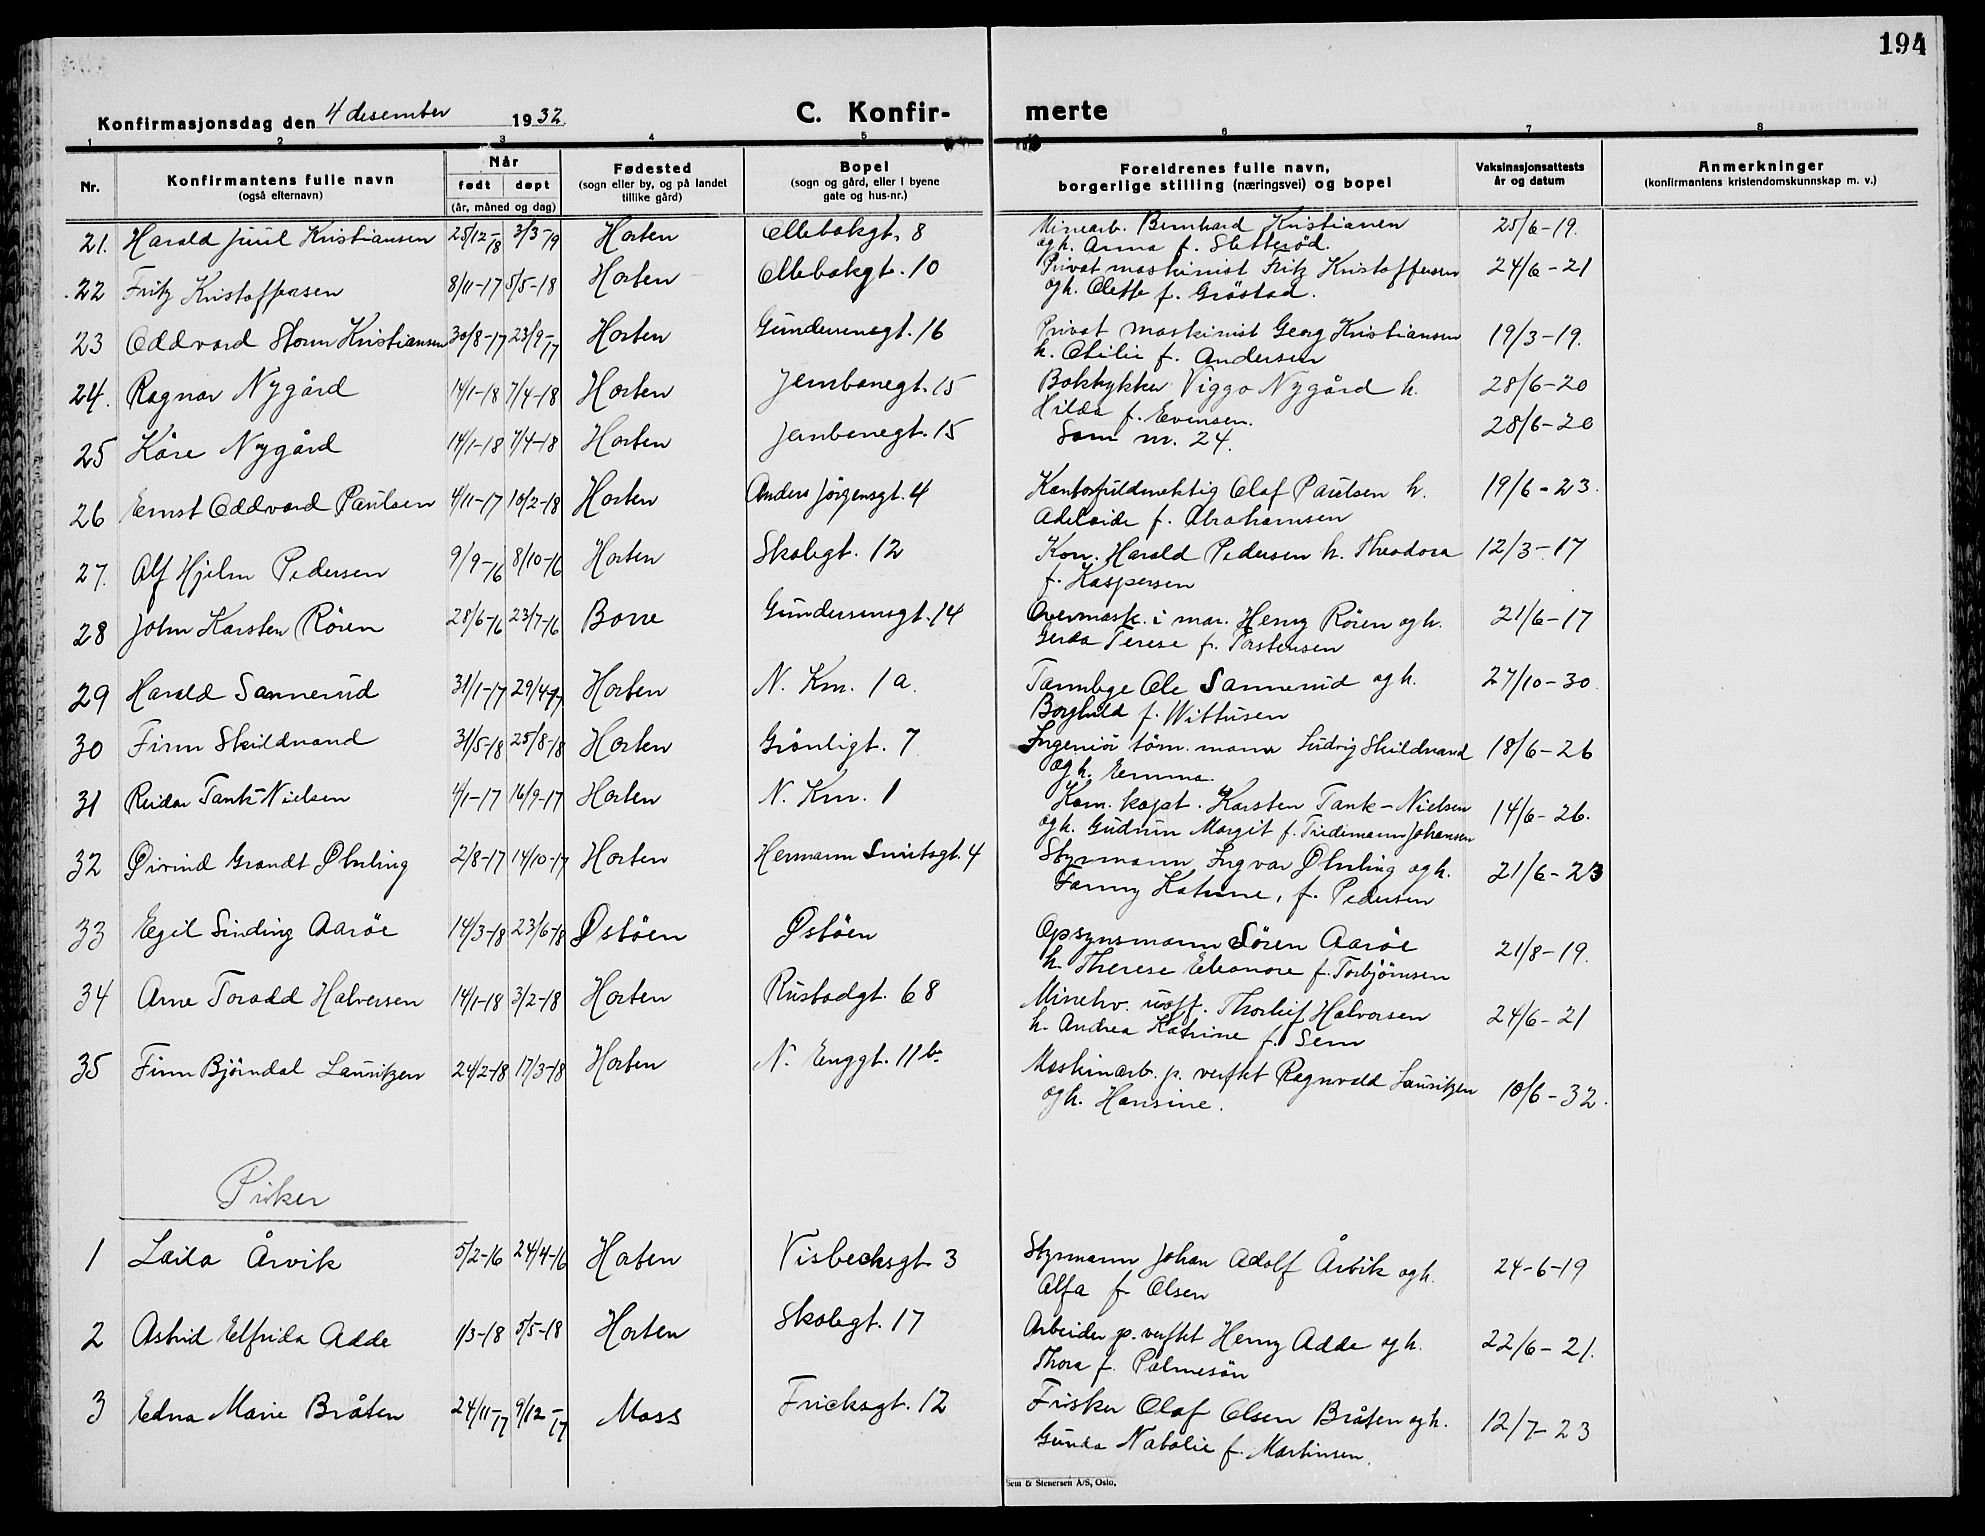 194
Konfirmasjonsdag den 4 desember 1932 C. Konfir- merte
1 2 3 4 5 6 7 8
Nr. Konfirmantens fulle navn (også efternavn) Når født døpt (år, måned og dag) Fødested (sogn eller by, og på landet tillike gård) Bopel (sogn og gård, eller i byene gate og hus-nr.) Foreldrenes fulle navn, borgerlige stilling (næringsvei) og bopel Vaksinasjonsattests år og datum Anmerkninger (konfirmantens kristendomskunnskap m. v.)
21. Harald Juul Kristiansen 25/12-18 3/3-19 Horten Ollebakgt. 8 Minearb. Bernhard Kristiansen 25/6-19.
og h. Anna f. Sletterød.
22 Fritz Kristoffersen 8/11-17 5/5-18 Horten Ollebakgt. 10 Privat maskinist Fritz Kristoffersen 24/6-21
og h. Olette f. Gröstad.
23 Oddvard Storm Kristiansen 30/8-17 23/9-17 Horten Gundersensgt. 16 Privat maskinist Georg Kristiansen 19/3-19.
h. Otilie f. Andersen
24. Ragnar Nygård 14/1-18 7/4-18 Horten Jernbanegt. 15 Boktrykker Viggo Nygård h. 28/6-20
Hilda f. Evensen.
25 Kåre Nygård 14/1-18 7/4-18 Horten Jernbanegt. 15 Som nr. 24. 28/6-20
26 Ernst Oddvard Paulsen 4/11-17 10/2-18 Horten Anders Jörgensgt. 4 Kontorfuldmektig Olaf Paulsen h. 19/6-23.
Adelaide f. Abrahamsen
27. Alf Hjelm Pedersen 9/9-16 8/10-16 Horten Skolegt. 12 Kon. Harald Pedersen h. Theodora 12/3-17
f. Kaspersen
28 John Karsten Rören 28/6-16 23/7-16 Borre Gundersensgt. 14 Overmask. i mar. Henry Rören og h. 21/6-17
Gerda Terese f. Torstensen
29 Harald Sannerud 31/1-17 29/4-17 Horten N. Km. 1a. Tannlege Ole Sannerud og h. 27/10-30.
Borghild f. Wittusen
30 Finn Skildnand 31/5-18 25/8-18 Horten Grönligt. 7 Ingeniör töm. mann Ludvig Skildnand 18/6-26
og h. Emma.
31 Reidar Tank-Nielsen 4/1-17 16/9-17 Horten N. Km. 1 Kom. kapt. Karsten Tank-Nielsen 14/6-26.
og h. Gudrun Margit f. Tiedemann Johansen
32 Øivind Grandt Øhrling 2/8-17 14/10-17 Horten Hermann Smitsgt. 4 Styrmann Ingvar Øhrling og h. 21/6-23
Fanny Katrine, f. Pedersen
33 Egil Sinding Aaröe 14/3-18 23/6-18 Østöen Østöen Opsynsmann Sören Aaröe 21/8-19.
h. Therese Eleonore f. Torbjörnsen
34 Arne Toradd Halvorsen 14/1-18 3/2-18 Horten Rustadgt. 68 Minehv. uoff. Thorleif Halvorsen 24/6-21
h. Andrea Katrine f. Sem
35 Finn Björndal Lauritzen 24/2-18 17/3-18 Horten N. Enggt. 11b. Maskinarb. p. verftet Ragnvald Lauritzen 10/6-32.
og h. Hansine.
Piker
1 Laila Årvik 5/2-16 24/4-16 Horten Visbecksgt 3 Styrmann Johan Adolf Årvik og h. 24-6-19
Alfa f. Olsen
2 Astrid Elfrida Adde 1/3-18 5/5-18 Horten Skolegt. 17 Arbeider p. verftet Henry Adde og h. 22/6-21.
Thora f. Palmesön
3 Edna Marie Bråten 24/11-17 9/12-17 Moss Fricksgt. 12 Fisker Olaf Olsen Bråten og h. 12/7-23
Gunda Natalie f. Martinsen.
Sem & Stenersen A/S, Oslo.